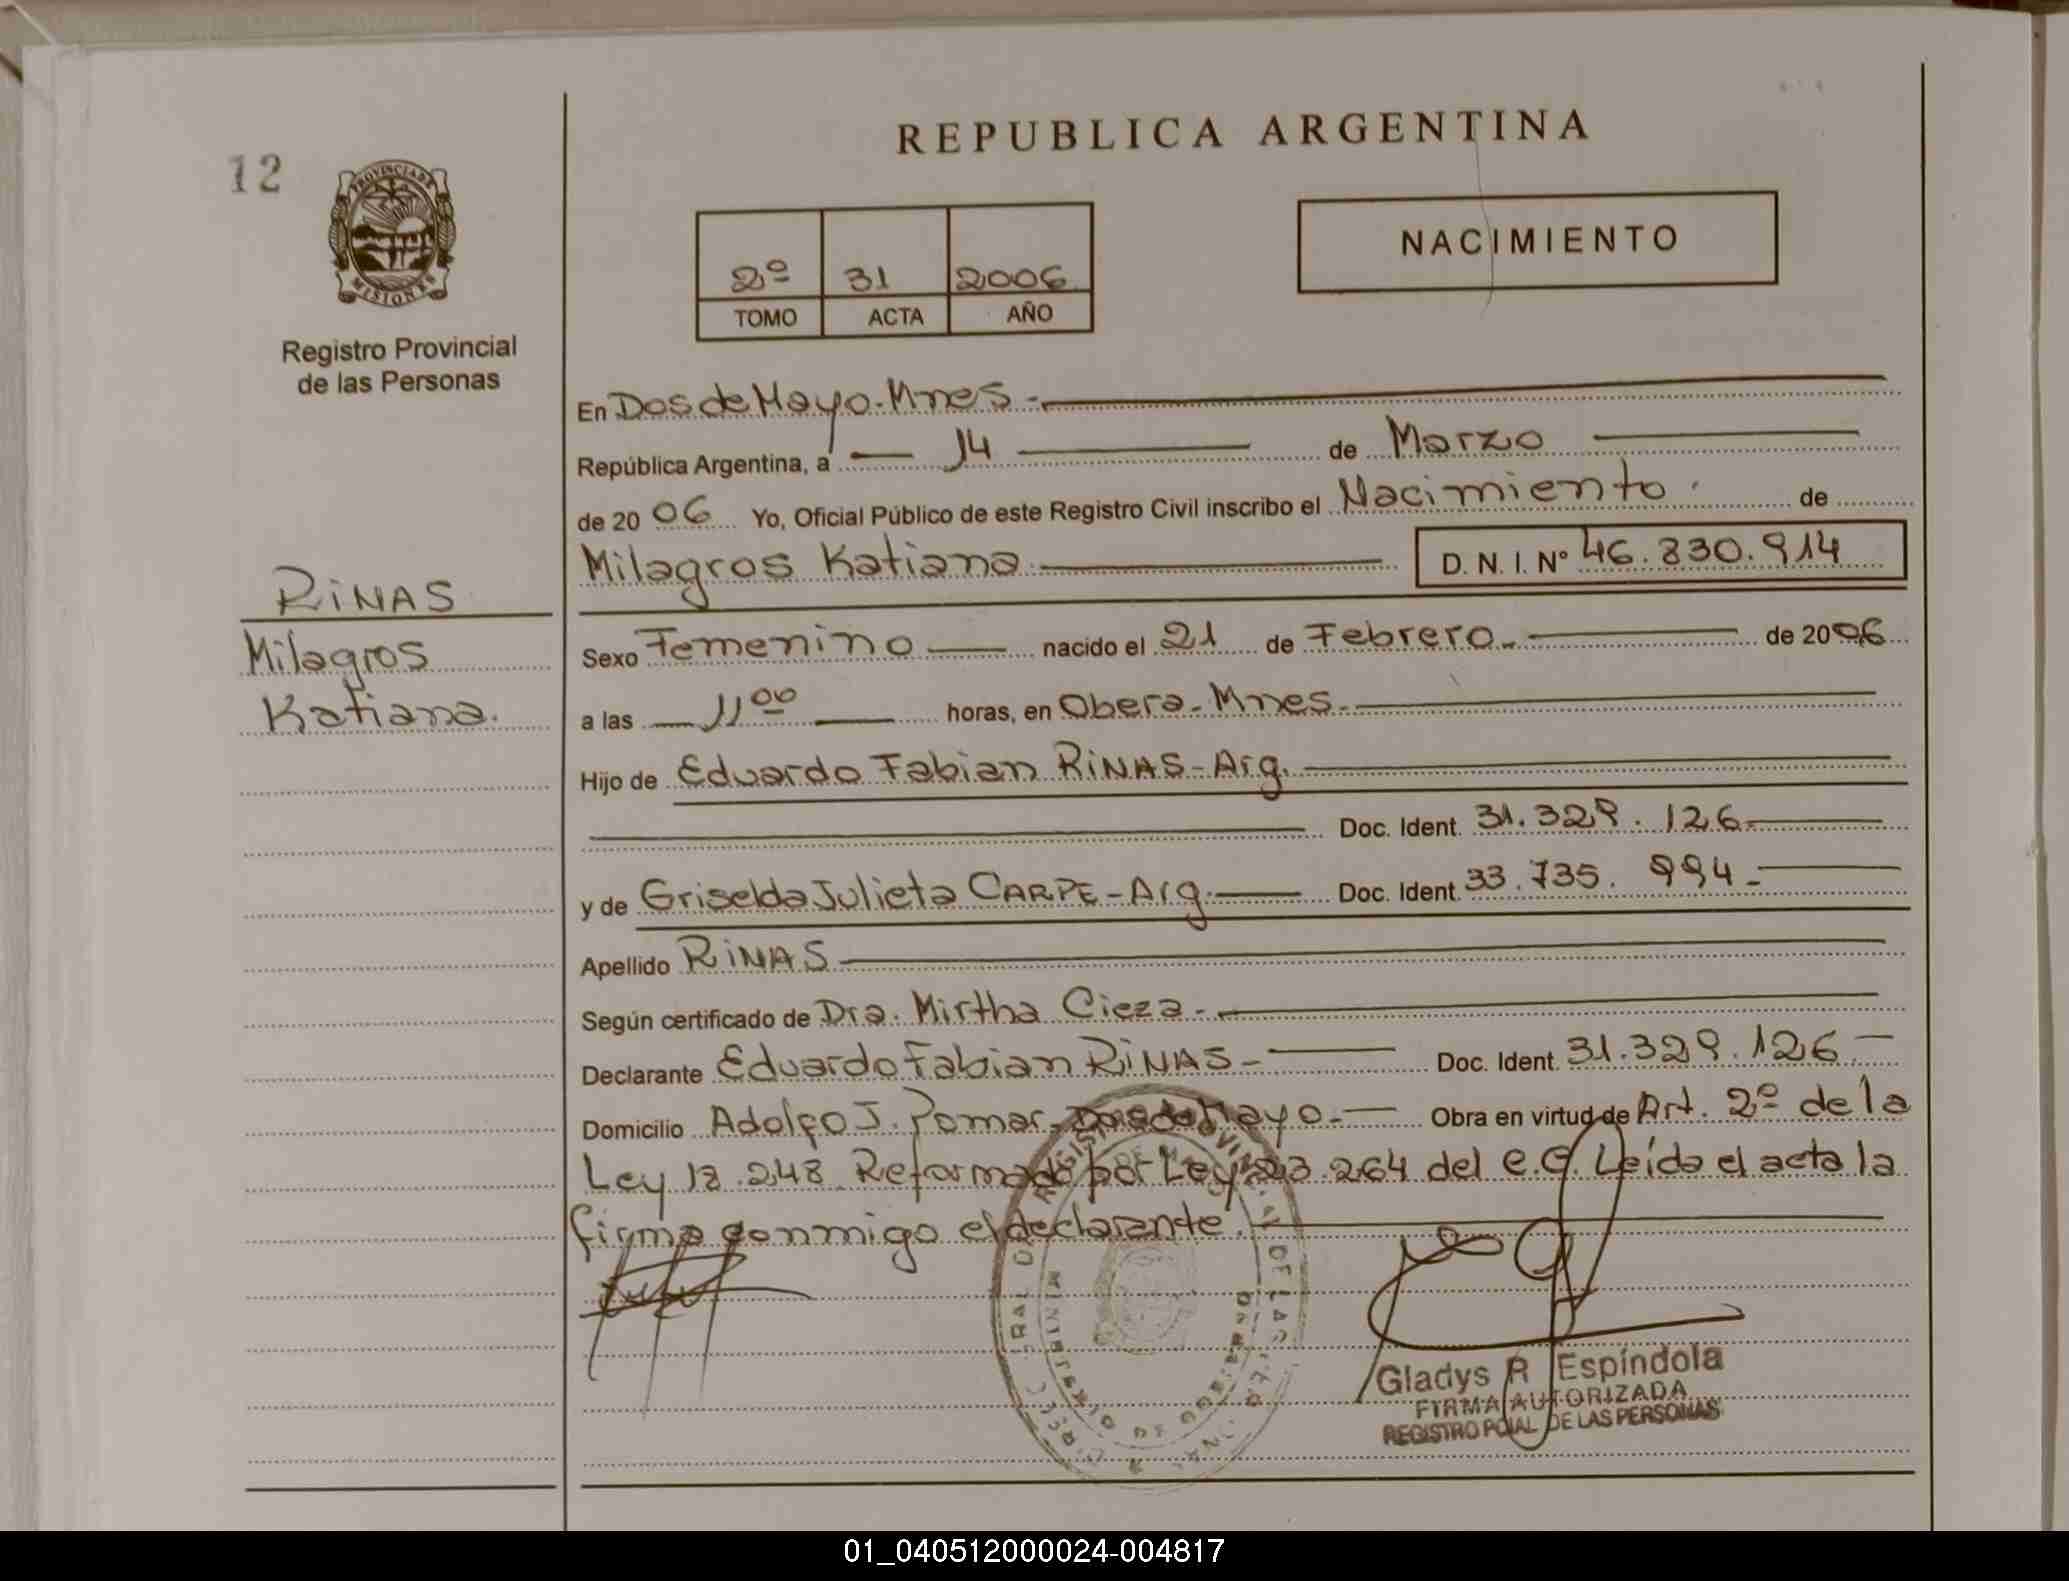 12
PROVINCIA DE
MISIONES
Registro Provincial
de las Personas
RINAS
Milagros
Katiana.
REPUBLICA ARGENTINA
2º 31 2006
TOMO ACTA AÑO
NACIMIENTO
En Dos de Mayo-Mnes-
República Argentina, a 14 de Marzo
de 2006 Yo, Oficial Público de este Registro Civil inscribo el Nacimiento de
Milagros Katiana D. N. I. Nº 46.830.914
Sexo Femenino nacido el 21 de Febrero de 2006
a las 11 00 horas, en Obera-Mnes-
Hijo de Eduardo Fabian RINAS-Arg.
Doc. Ident. 31.329.126-
y de Griselda Julieta CARPE-Arg. Doc. Ident. 33.735.994-
Apellido RINAS
Según certificado de Dra. Mirtha Cieza-
Declarante Eduardo Fabian RINAS- Doc. Ident. 31.329.126-
Domicilio Adolfo J. Pomar-Dos de Mayo- Obra en virtud de Art. 2º de la
Ley 18.248 Reformado por Ley 23.264 del C.C. Leída el acta la
firma conmigo el declarante.
Gladys R Espíndola
FIRMA AUTORIZADA
REGISTRO PCIAL DE LAS PERSONAS
01_040512000024-004817